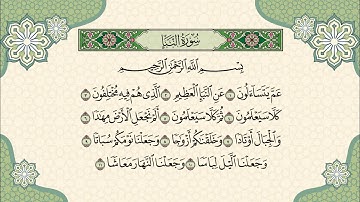 سُورَةُ النَّبَإِ
بِسْمِ اللَّهِ الرَّحْمَٰنِ الرَّحِيمِ
عَمَّ يَتَسَاءَلُونَ ١ عَنِ النَّبَإِ الْعَظِيمِ ٢ الَّذِي هُمْ فِيهِ مُخْتَلِفُونَ ٣
كَلَّا سَيَعْلَمُونَ ٤ ثُمَّ كَلَّا سَيَعْلَمُونَ ٥ أَلَمْ نَجْعَلِ الْأَرْضَ مِهَٰدًا ٦
وَالْجِبَالَ أَوْتَادًا ٧ وَخَلَقْنَٰكُمْ أَزْوَٰجًا ٨ وَجَعَلْنَا نَوْمَكُمْ سُبَاتًا ٩
وَجَعَلْنَا الَّيْلَ لِبَاسًا ١٠ وَجَعَلْنَا النَّهَارَ مَعَاشًا ١١